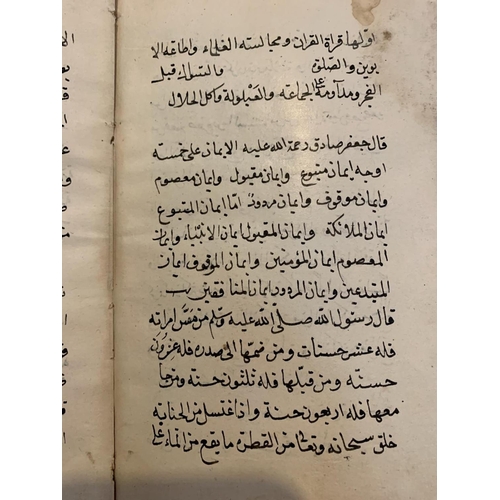 اولها قراة القران ومجالسته العلماء واطاعه الا
بوين والصلوة والتسواك قبل
الفجر ومداومة على الجماعته والقيلولة وكل الحلال
قال جعفر صادق رحمة الله عليه الايمان على خمسته
اوجه ايمان متبوع وايمان مقبول وايمان معصوم
وايمان موقوف وايمان مردود امّا ايمان المتبوع
ايمان الملائكة وايمان المقبول ايمان الانبياء وايمان
المعصوم ايمان المؤمنين وايمان الموقوف ايمان
المبتدعين وايمان المردود ايمان المنافقين
قال رسول الله صلى الله عليه وسلم من مسّ امراته
فله عشر حسنات ومن ضمّها الى صدره فله عشرون
حسنته ومن قبلها فله ثلثون حسنته ومن جا
معها فله اربعون حسنة واذا غتسل من الجنابته
خلق سبحانه وتعالى من القطره ما يقع من الماء على